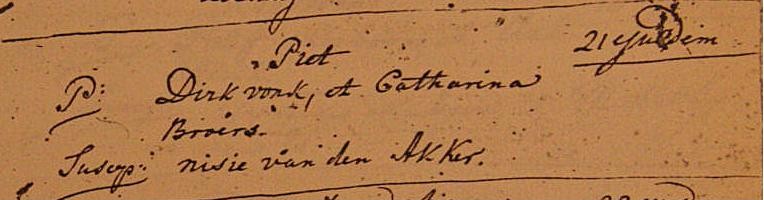 Piet 21 ejusdem
P: Dirk vonk, et Catharina
Broërs.
Suscep: nisie van den Akker.